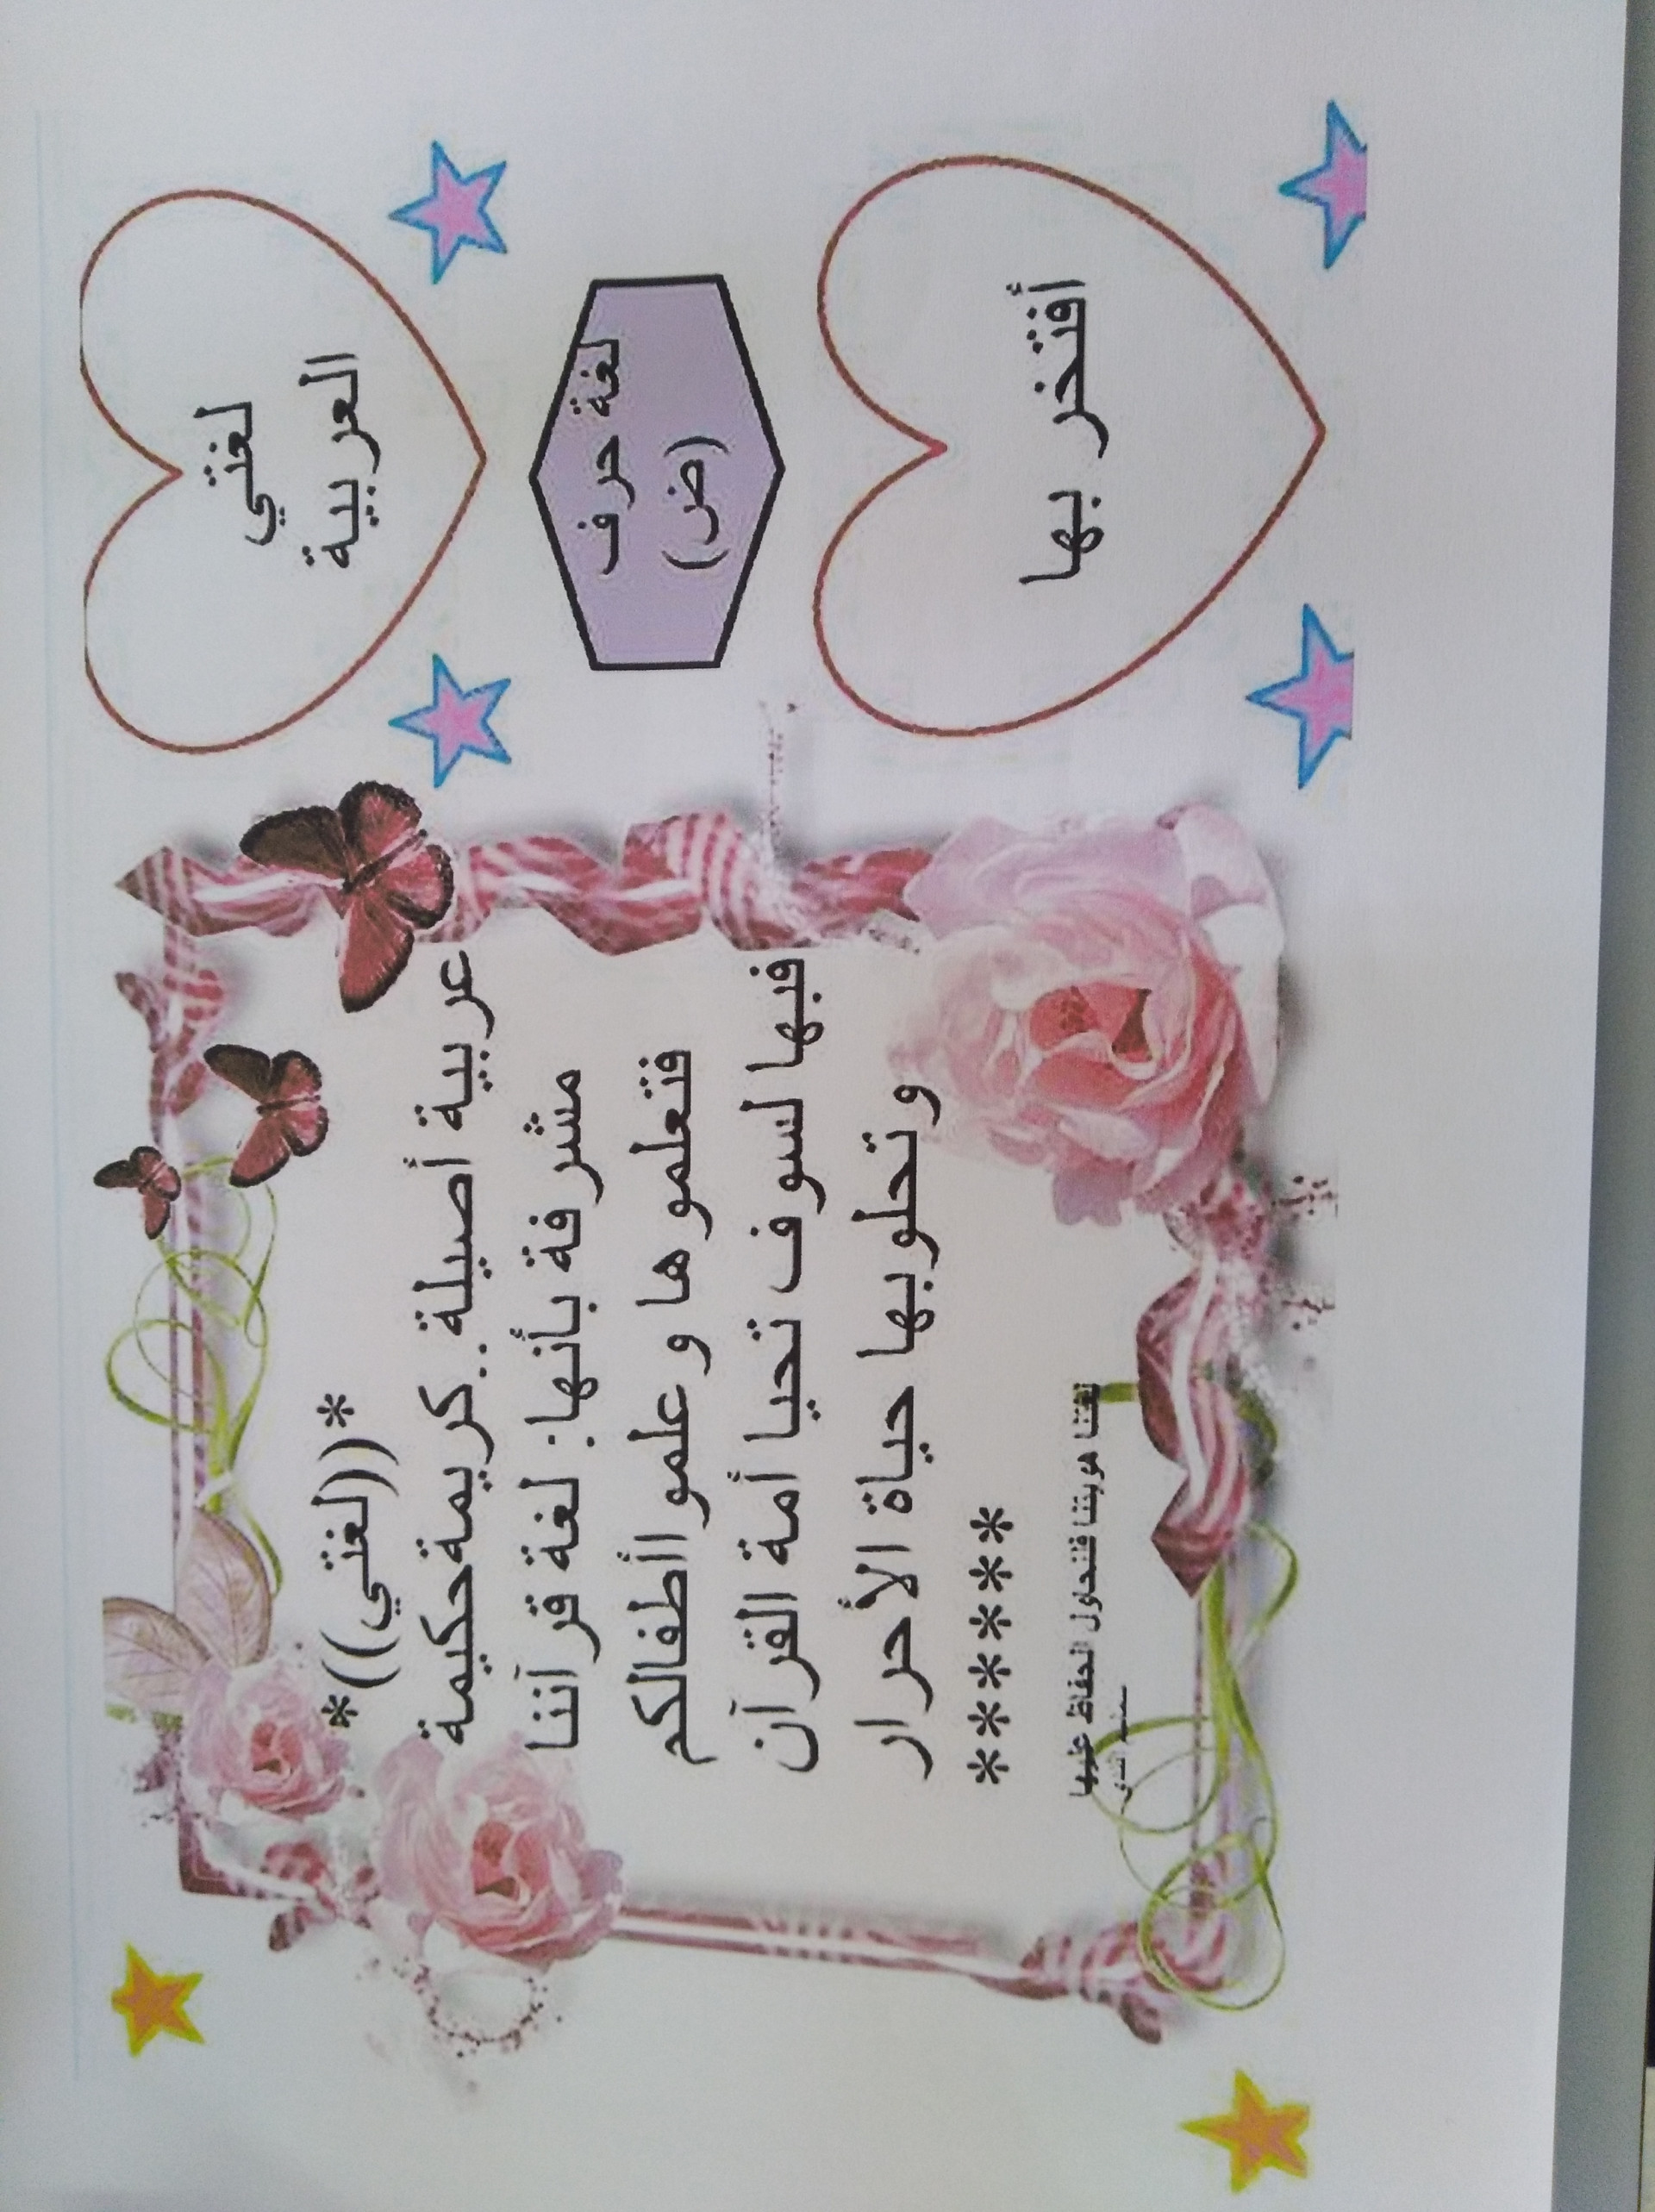 لغتي
العربية
لغة حرف
(ض)
أفتخر بها
*((لغتي))*
عربية أصيلة..كريمةحكيمة
مشرفة بأنها: لغة قرآننا
فتعلموها وعلموا أطفالكم
فبها لسوف تحيا أمة القرآن
وتحلو بها حياة الأحرار
******
لغتنا هويتنا فلنحاول الحفاظ عليها